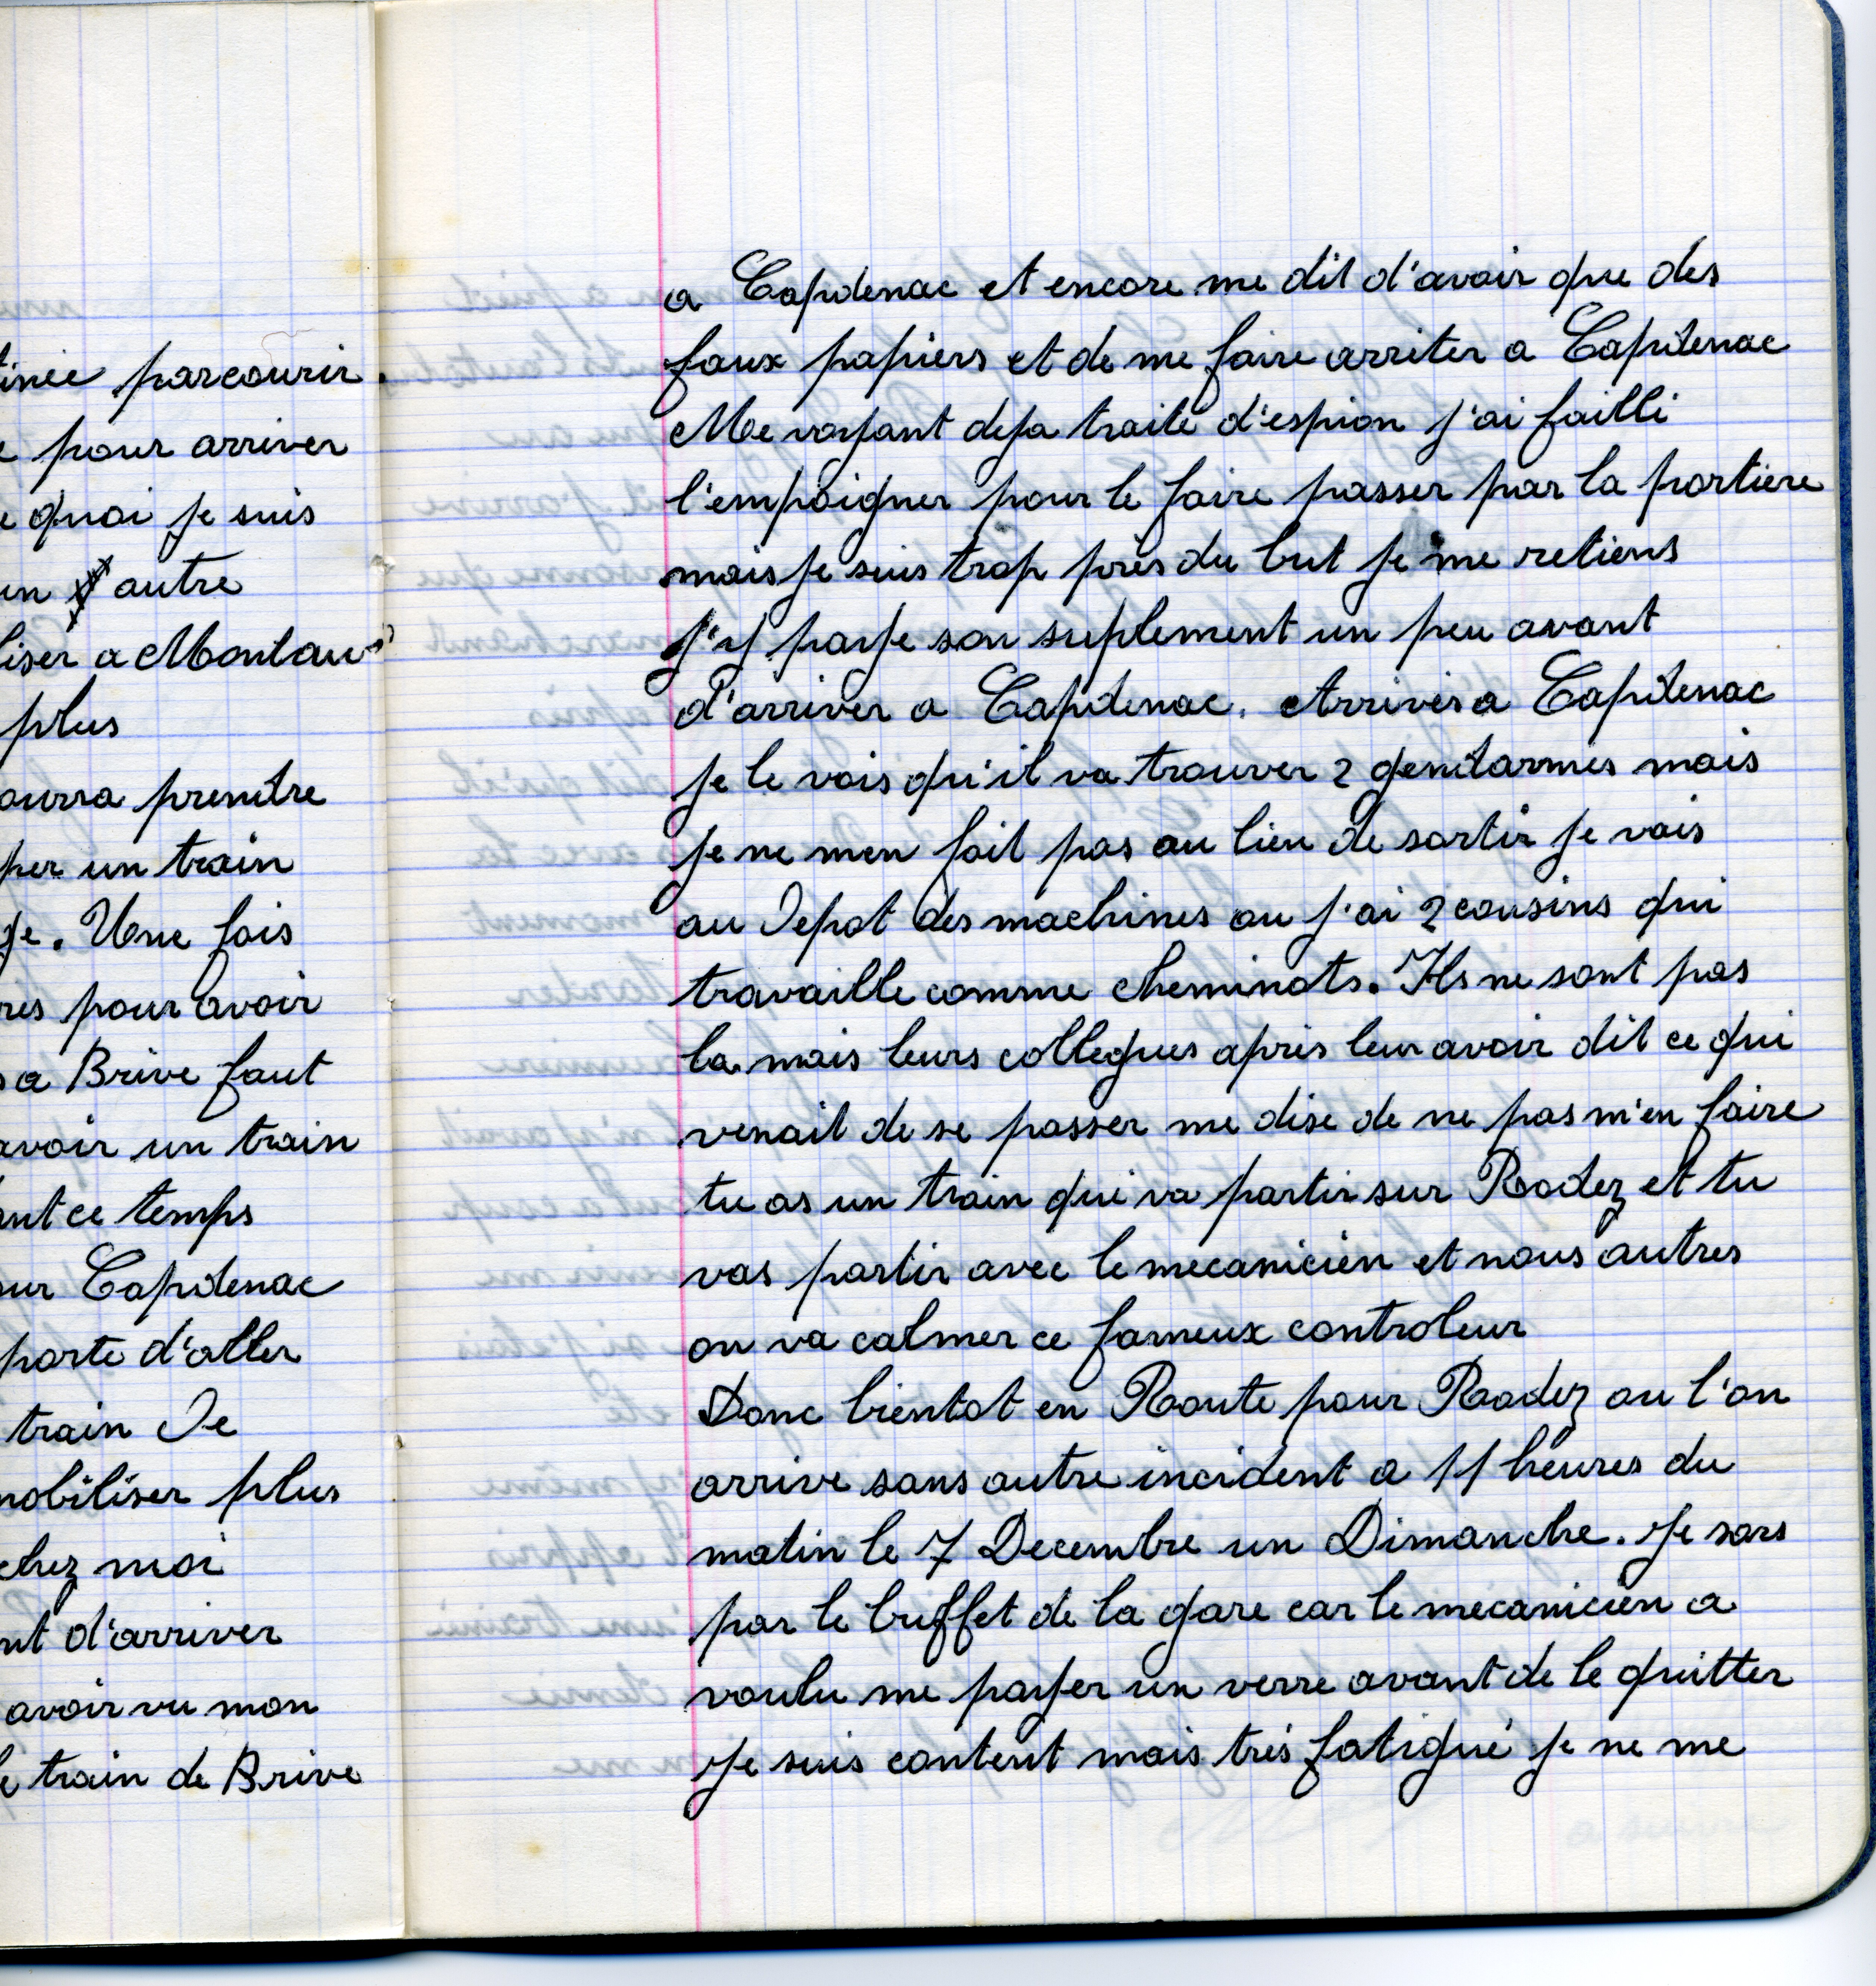 tinée parcourir.
e pour arriver
e quoi je suis
un autre
liser a Montau
plus
ourra prendre
per un train
ge. Une fois
res pour avoir
s a Brive faut
avoir un train
ant ce temps
sur Capdenac
porte d'aller
train De
mobiliser plus
chez moi
nt d'arriver
avoir vu mon
le train de Brive
a Capdenac et encore me dit d'avoir que des
faux papiers et de me faire arriter a Capdenac
Me voyant deja traité d'espion j'ai failli
l'empoigner pour le faire passer par la portiere
mais je suis trop près du but je me retiens
j'y paye son suplement un peu avant
d'arriver a Capdenac. Arrivés a Capdenac
je le vois qu'il va trouver 2 gendarmes mais
je ne men fait pas au lieu de sortir je vais
au Depot des machines ou j'ai 2 cousins qui
travaille comme cheminots. Ils ne sont pas
la mais leurs collegues après leur avoir dit ce qui
venait de se passer me dise de ne pas m'en faire
tu as un train qui va partir sur Rodez et tu
vas partir avec le mecanicien et nous autres
on va calmer ce fameux controleur
Donc bientot en Route pour Rodez ou l'on
arrive sans autre incident a 11 heures du
matin le 7 Decembre un Dimanche. Je sors
par le buffet de la gare car le mecanicien a
voulu me payer un verre avant de le quitter
Je suis content mais très fatigué je ne me